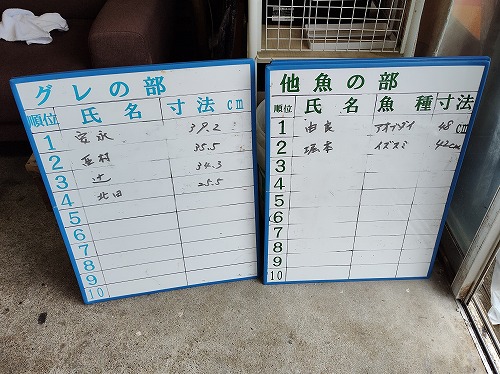 グレの部
順位 氏名 寸法cm
1 安永 39.2
2 西村 35.5
3 辻 34.3
4 北田 25.5
5
6
7
8
9
10
他魚の部
順位 氏名 魚種 寸法
1 由良 アオブダイ 48cm
2 堀本 イズスミ 42cm
3
4
5
6
7
8
9
10